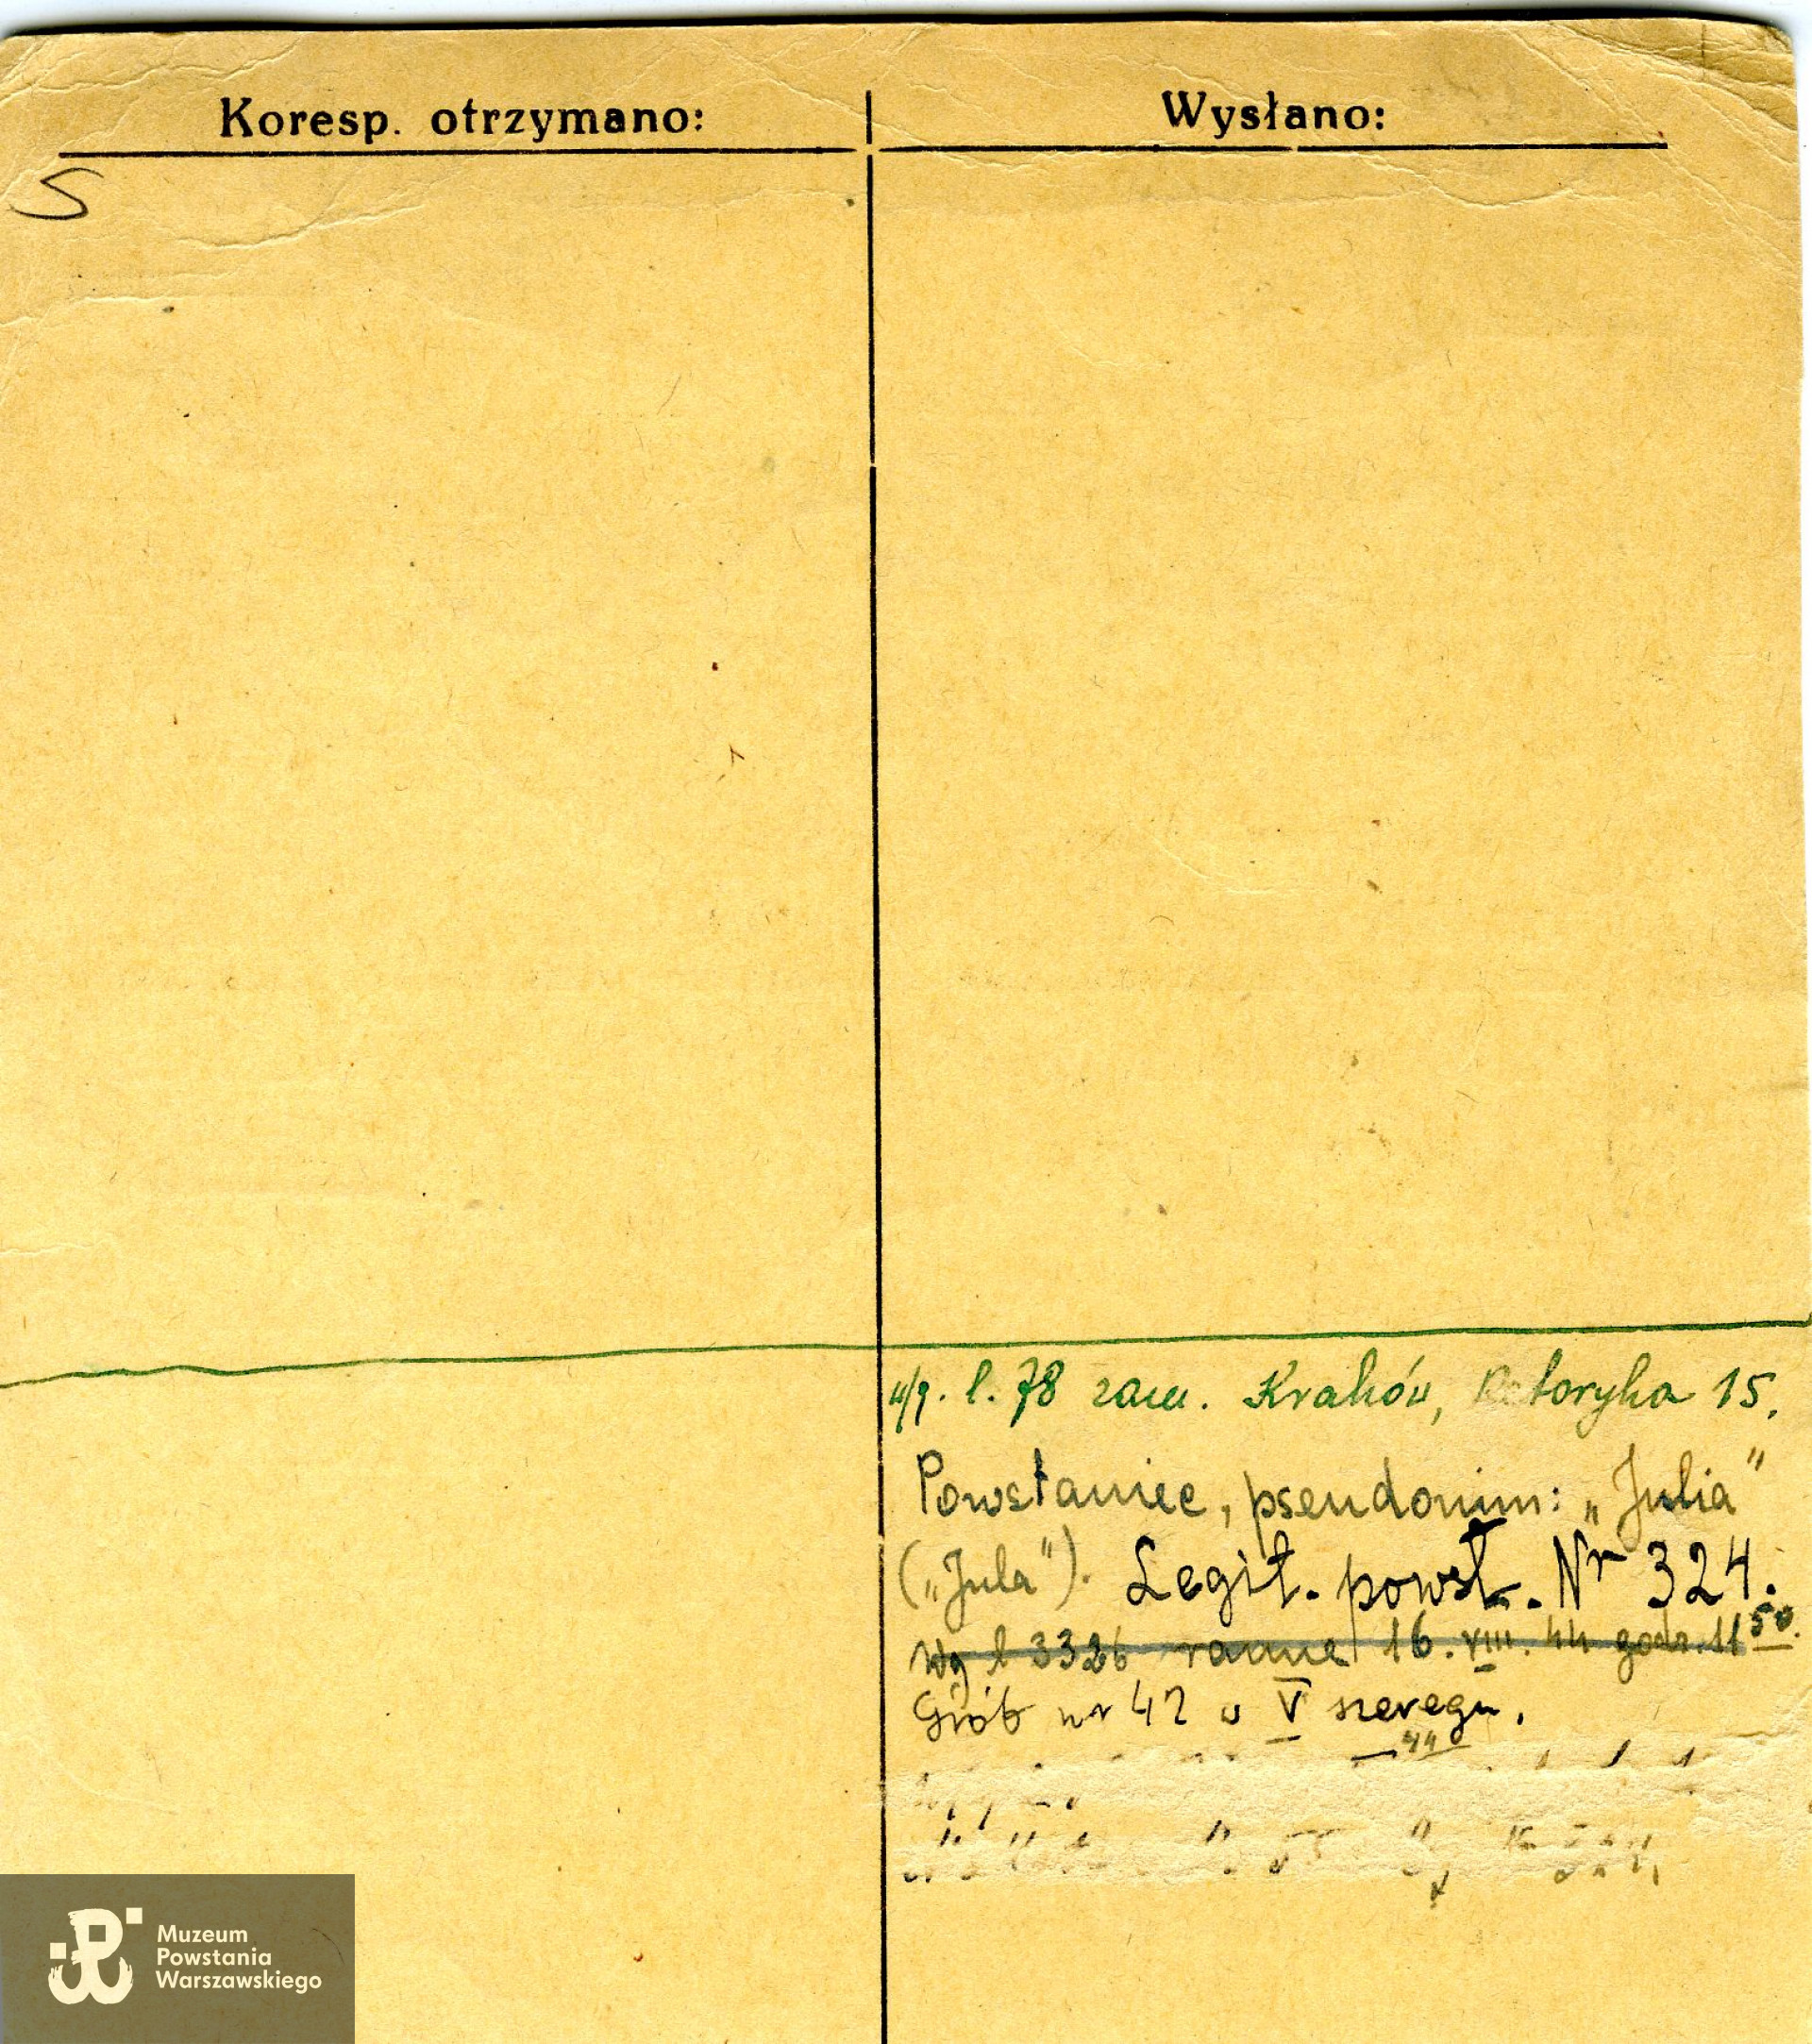 Koresp. otrzymano:
Wysłano:
S
w/g. l. 78 zam. Kraków, Retoryka 15.
Powstaniec, pseudonim: „Julia”
(„Jula”). Legit. powst. Nr 324.
Wg l 3326 ranne 16.VIII.44 godz. 11 50.
Grób nr 42 w V szeregu.
44
Muzeum
Powstania
Warszawskiego